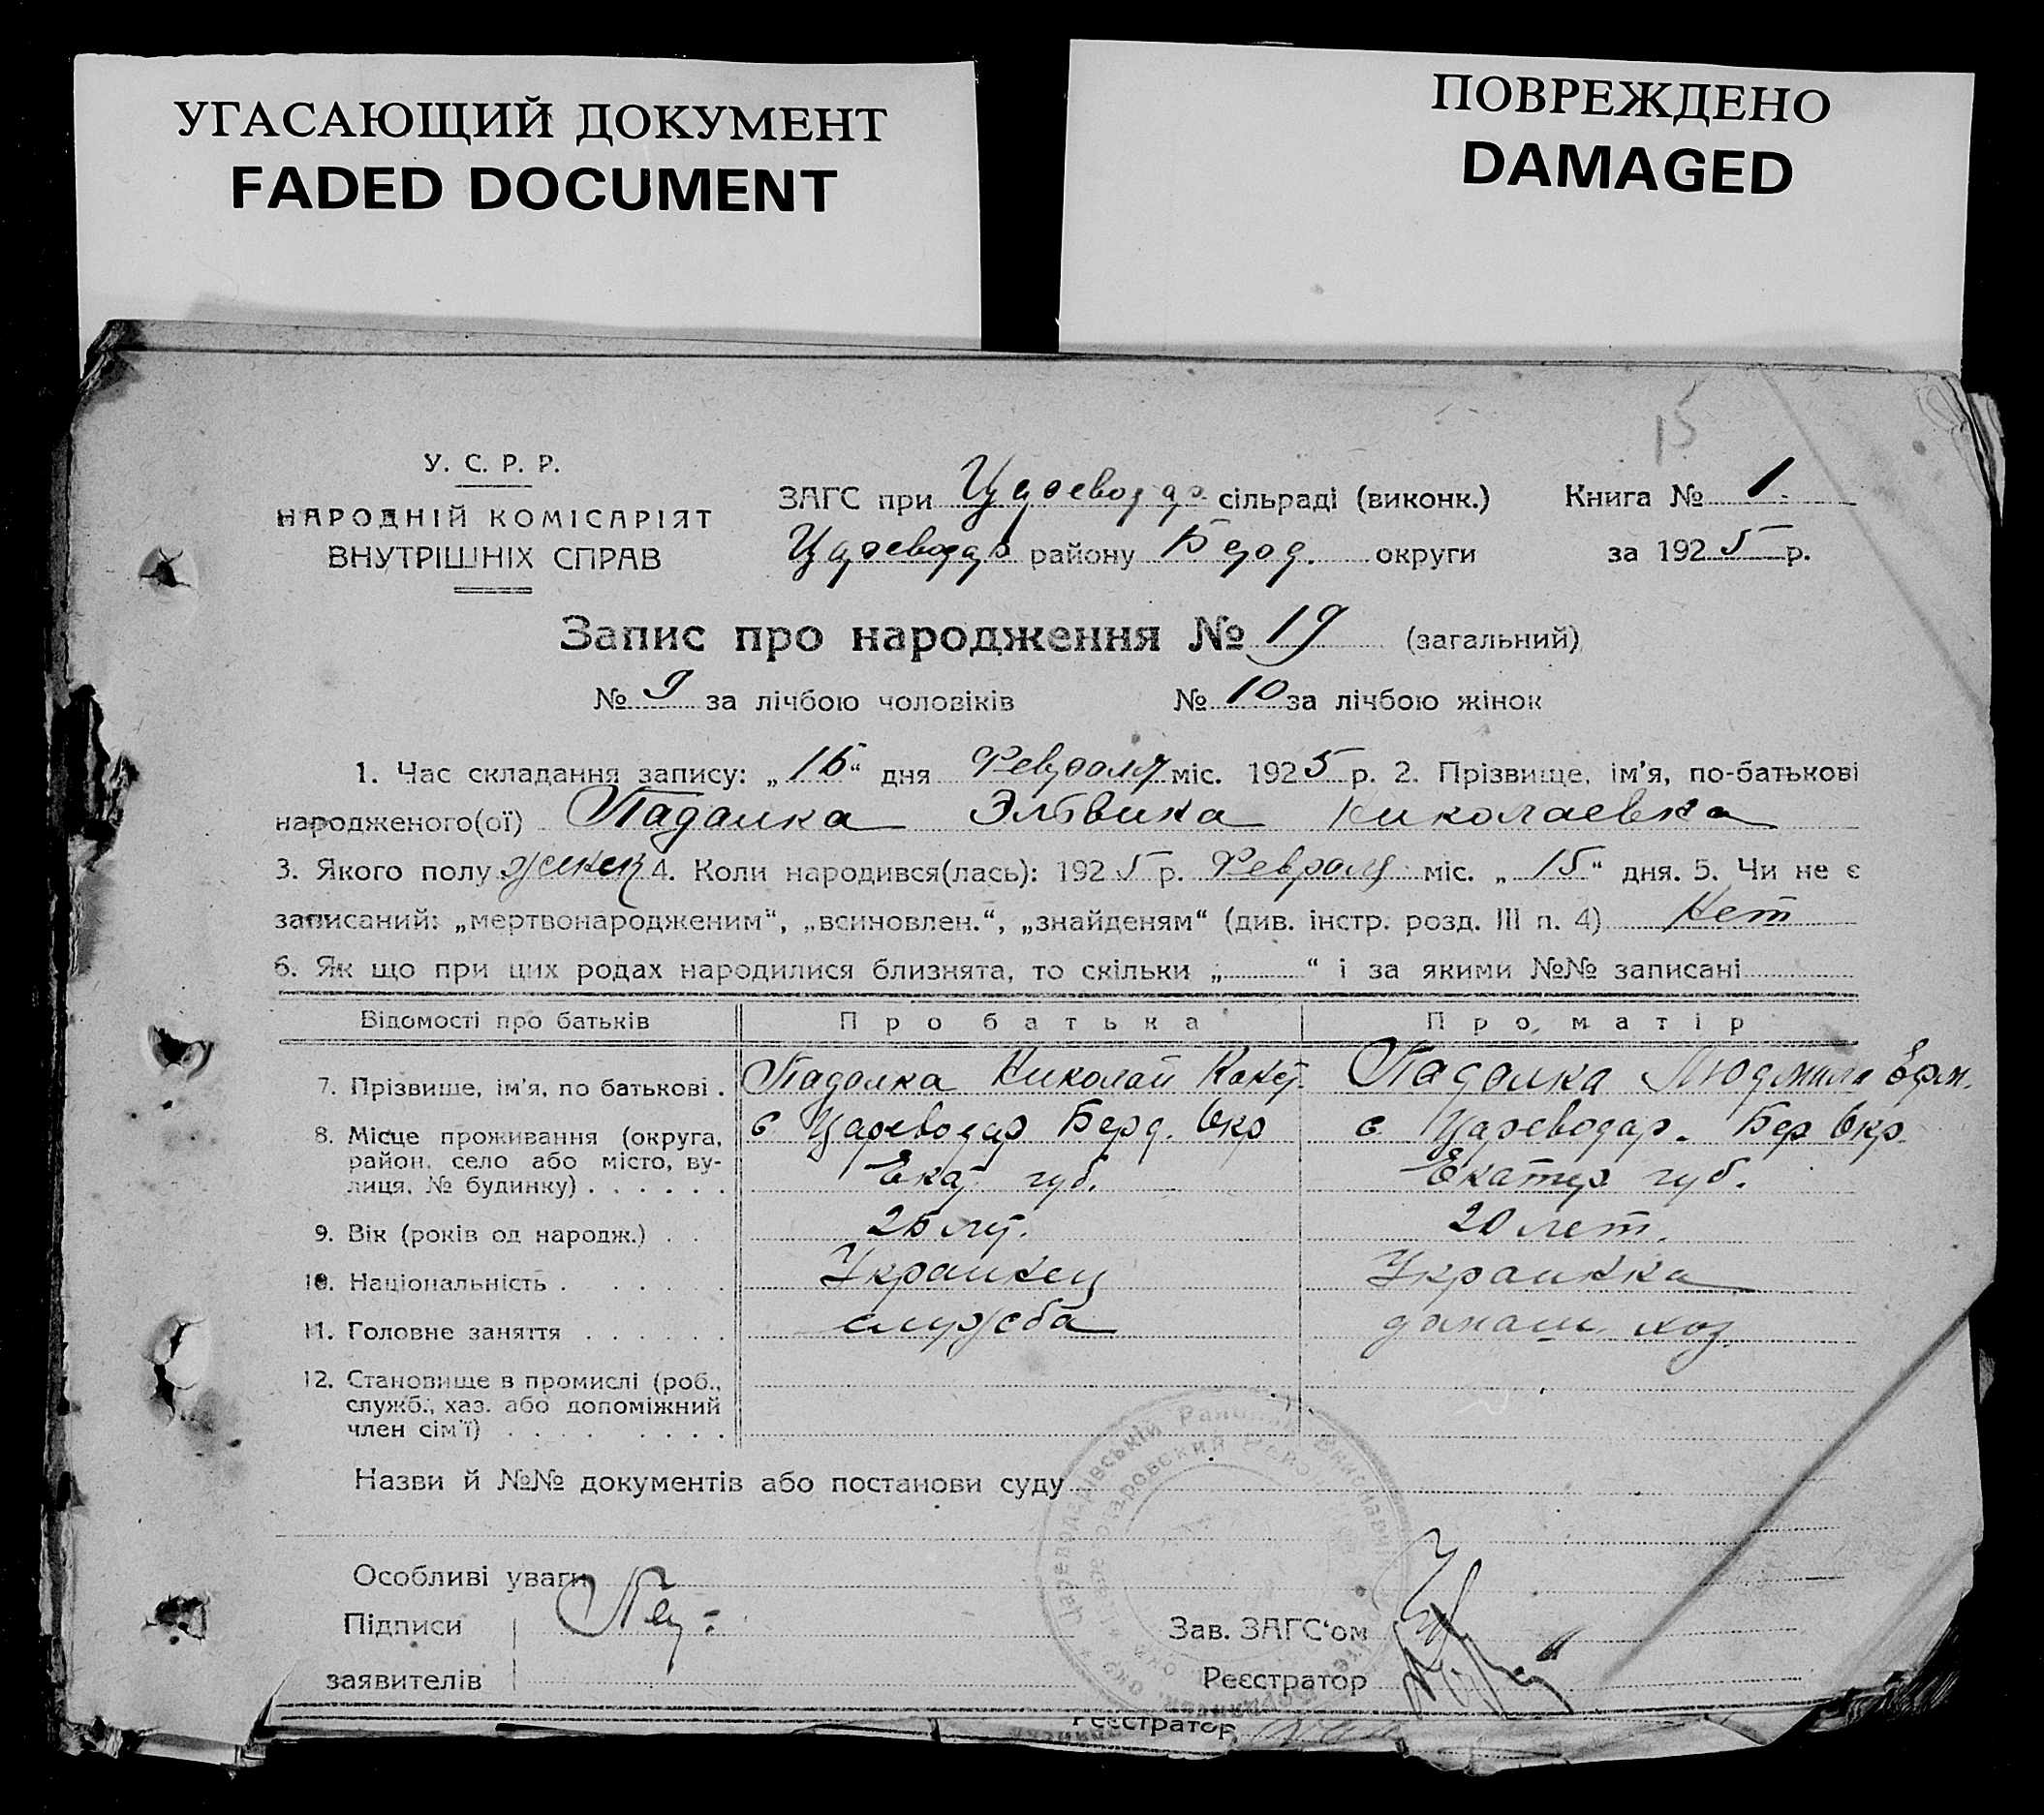 УГАСАЮЩИЙ ДОКУМЕНТ
FADED DOCUMENT
ПОВРЕЖДЕНО
DAMAGED
15
У. С. Р. Р.
НАРОДНІЙ КОМІСАРІЯТ
ВНУТРІШНІХ СПРАВ
ЗАГС при Цареводар сільраді (виконк.) Книга № 1.
Цареводар району Берд. округи за 1925 р.
Запис про народження № 19 (загальний)
№ 9 за лічбою чоловіків № 10 за лічбою жінок
1. Час складання запису: „16“ дня Февраля міс. 1925 р. 2. Прізвище, ім’я, по-батькові
народженого(ої) Падалка Эльвина Николаевна
3. Якого полу женск 4. Коли народився(лась): 1925 р. Февраля міс. „15“ дня. 5. Чи не є
записаний: „мертвонародженим“, „всиновлен.“, „знайденям“ (див. інстр. розд. III п. 4) Нет
6. Як що при цих родах народилися близнята, то скільки „ “ і за якими №№ записані
Відомості про батьків Про батька Про матір
7. Прізвище, ім’я, по батькові . Падалка Николай Падалка Людмила Ефм.
8. Місце проживання (округа, с Цареводар Берд. Окр с. Цареводар. Бер Окр.
район, село або місто, ву-
лиця, № будинку) . . . . . . Екат губ. Екатер губ.
9. Вік (років од народж.) . . 26 лет. 20 лет.
10. Національність . . . . . . Украинец Украинка
11. Головне заняття . . . . . . служба домаш. хоз.
12. Становище в промислі (роб.,
служб., хаз. або допоміжний
член сім’ї) . . . . . . . .
Назви й №№ документів або постанови суду
Особливі уваги
Підписи
заявителів
Зав. ЗАГС‘ом
Реєстратор
Реєстратор